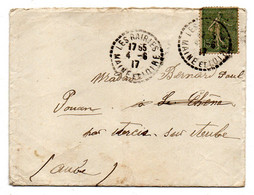 LES RAIRIES
17 55
4 - 6
17
MAINE ET LOIRE
Madame Bernard Paul
Pouan à Le Chêne
par Arcis sur Aube
(Aube)